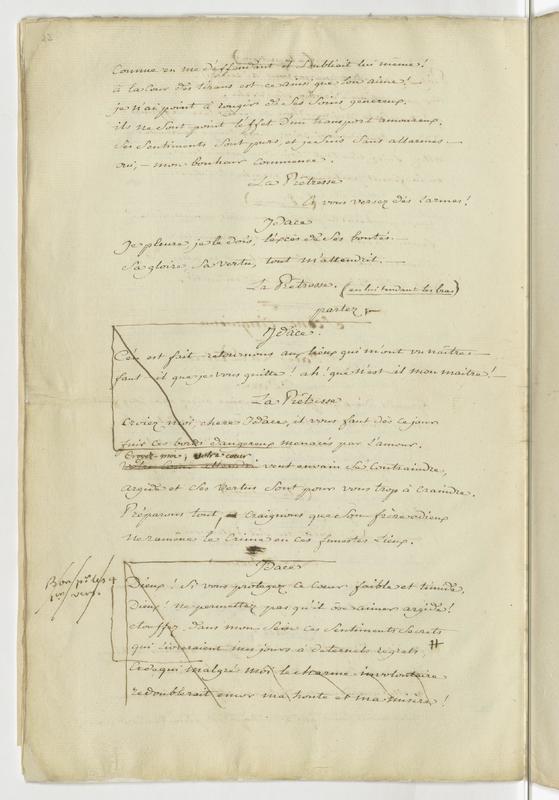 22
Connue en me deffendant et s'oubliait lui même !
à la Cour des tirans est ce ainsi que l'on aime ! —
je n'ai point à rougir de ses Soins genereux.
ils ne Sont point l'effet d'un transport amoureux.
Ses Sentiments Sont purs, et je Suis Sans allarmes —
oui, — mon bonheur commence.
La Prêtresse
Et vous versez des larmes !
Idace
Je pleure, je le dois, l'excès de Ses bontés —
Sa gloire, Sa vertu, tout m'attendrit. —
La Prêtresse. (en lui tendant les bras)
partez —
Idace.
C'en est fait — retournons aux lieux qui m'ont vu naître —
faut-il que je vous quitte ! ah ! que n'est-il mon maître ! —
La Prêtresse
Croiez moi, chere Idace, il vous faut dès ce jour
fuir ces bords dangereux menacés par l'amour.
Croyez-moi, votre cœur
veut envain Se Contraindre,
argide et Ses vertus Sont pour vous trop à craindre.
Préparons tout, — craignons que Son frère odieux
ne ramène le Crime en ces funestes Lieux.
Idace
Dieux ! Si vous protegez ce Coeur faible et timide,
Dieux ! ne permettez pas qu'il ose aimer argide !
étouffez dans mon Sein ces Sentiments Secrets
qui livreraient mes jours à d'eternels regrets. #
Ce de qui malgré moi le charme involontaire
redoublerait encor ma honte et ma misère !